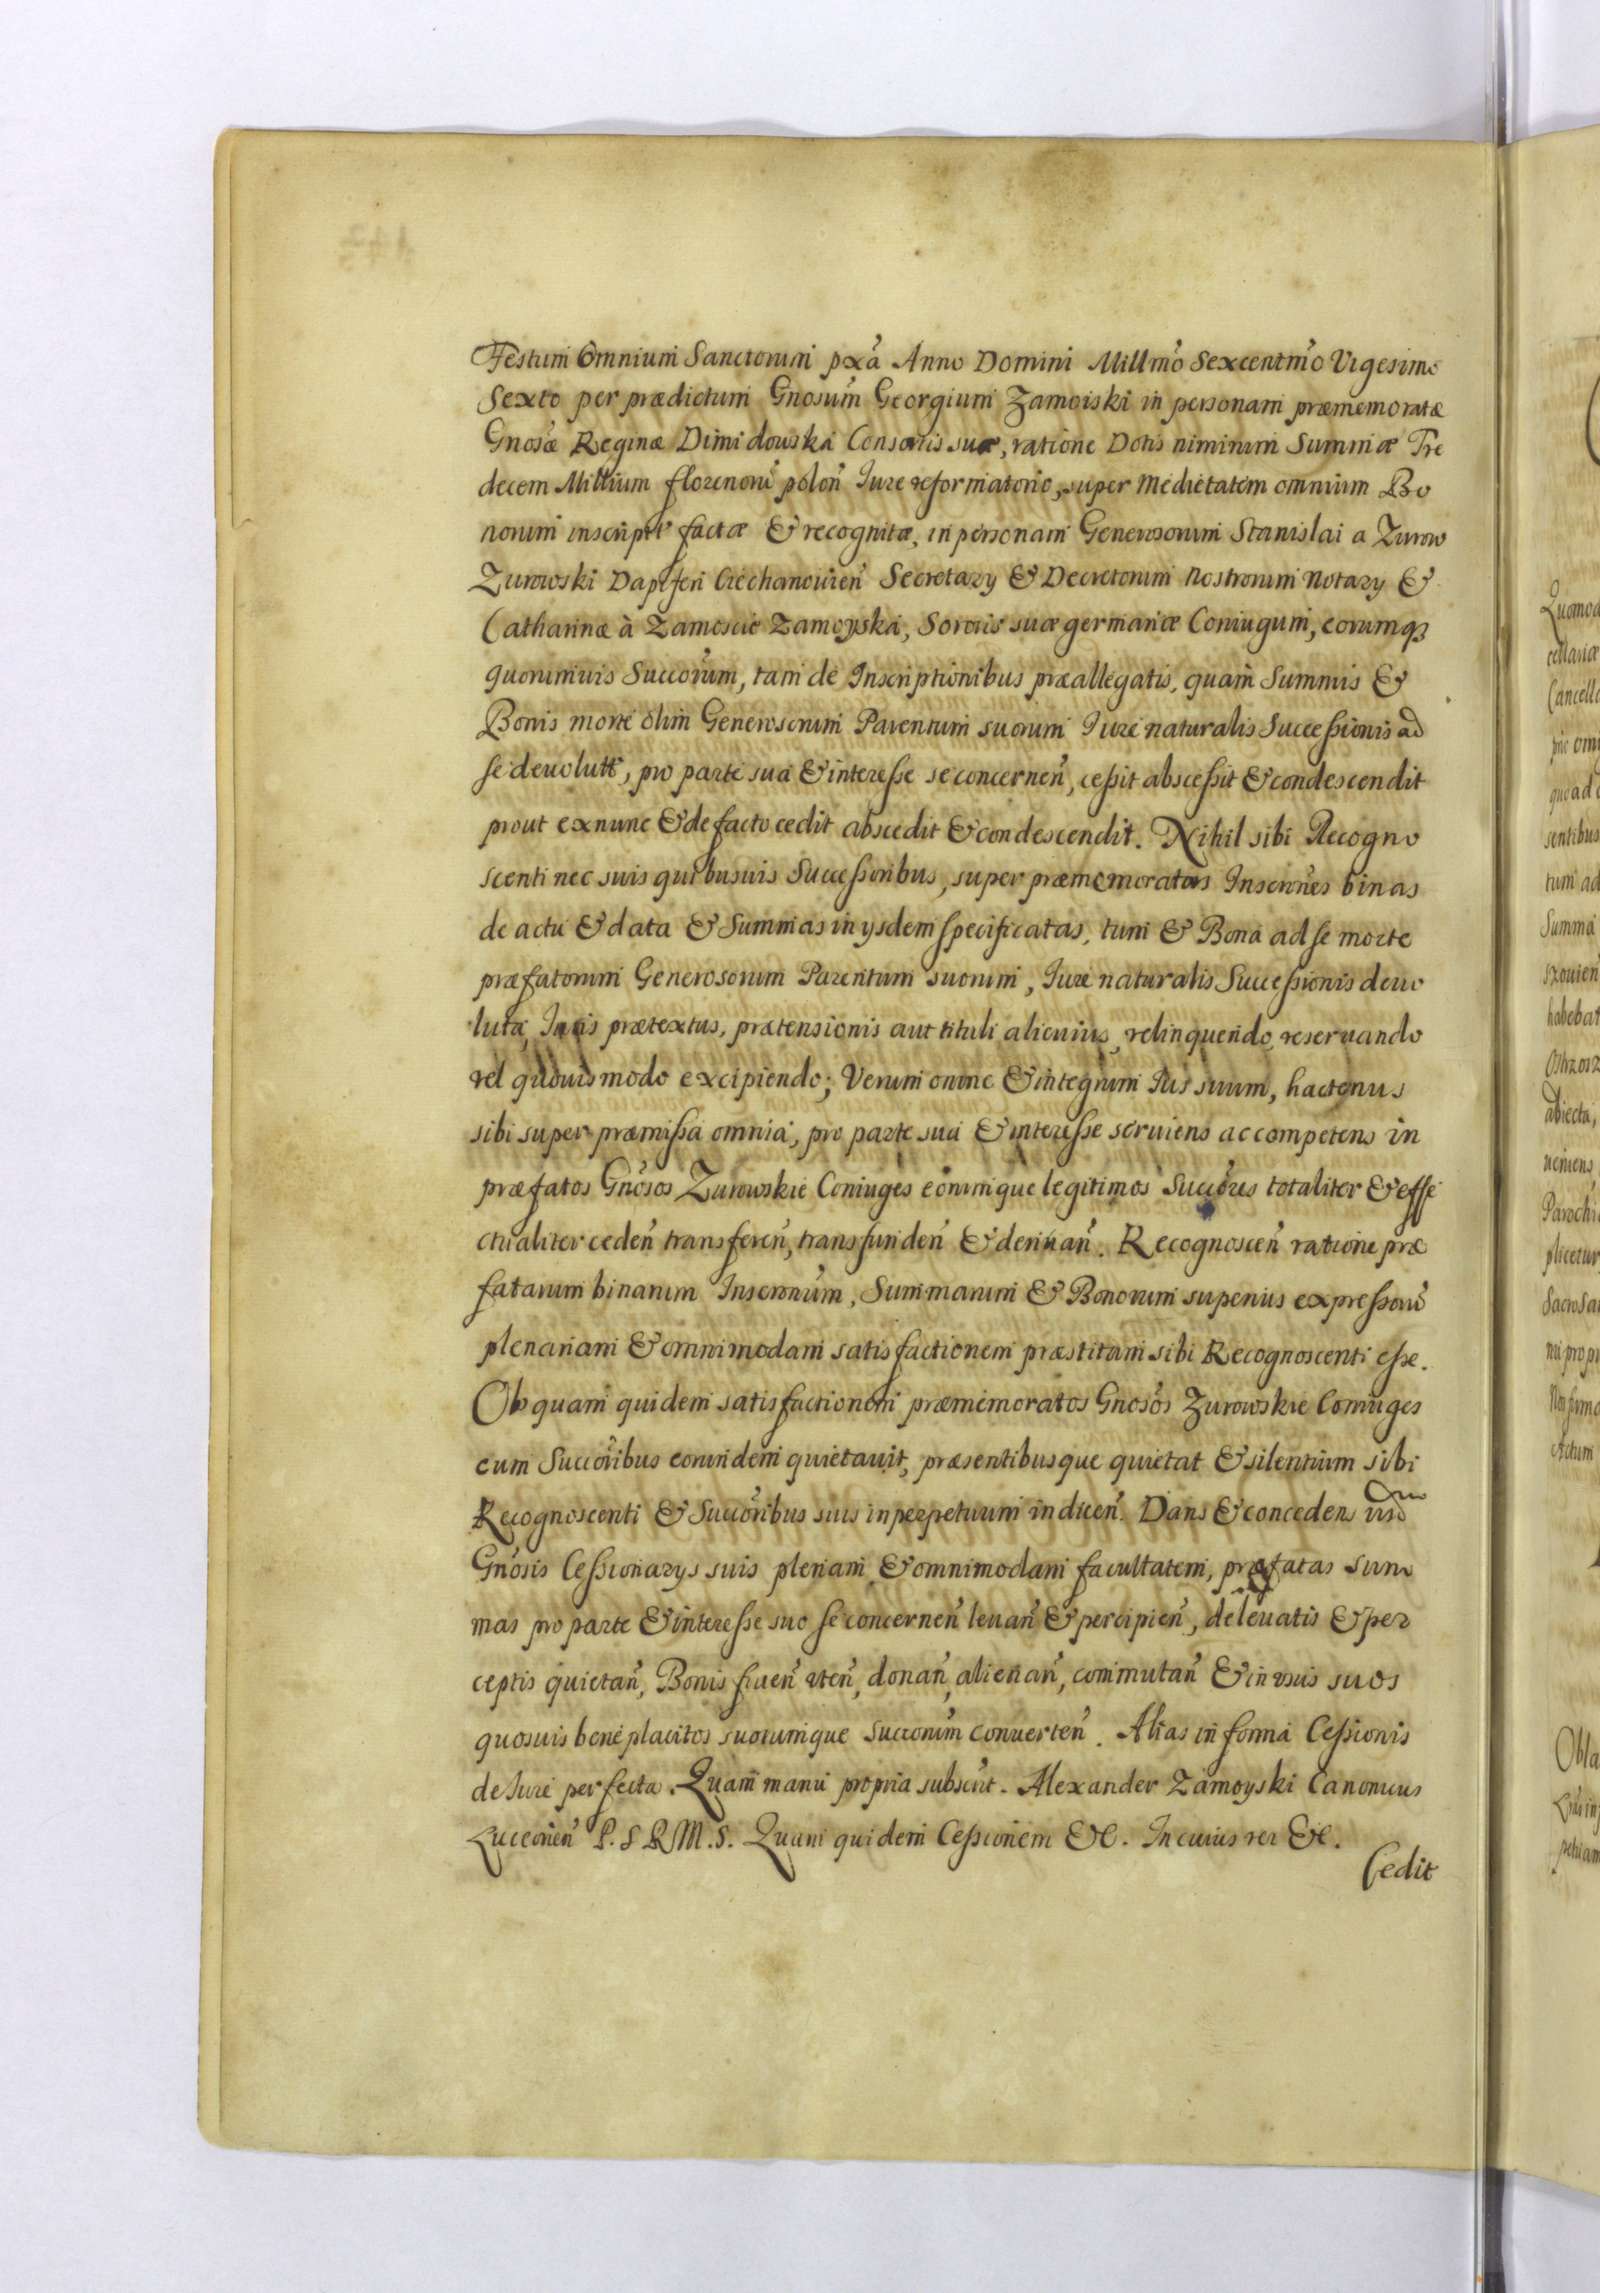 Festum Omnium Sanctorum pxã Anno Domini Millmõ Sexcentmõ Vigesimo
Sexto per prædictum Gnosum̃ Georgium Zamoiski in personam præmemoratæ
Gnosæ Reginæ Dimidowska Consortis suæ, ratione Dotis nimirum Summæ Tre
decem Millium florenorũ polon̄ Iure reformatorio, super medietatem omnium Bo
norum inscript̃ factæ & recognitæ, in personam Generosorum Stanislai a Zurow
Zurowski Dapiferi Ciechanouien̄ Secretary & Decretorum Nostrorum Notary &
Catharinæ à Zamoscie Zamoyska, Sororis suæ germanæ Coniugum, eorumq3
quorumuis Succorum̃, tam de Inscriptionibus præallegatis, quam Summis &
Bonis morte olim Generosorum Parentum suorum Iure naturalis Successionis ad
se deuolutt̃, pro parte sua & interesse se concernen̄, cessit abscessit & condescendit
prout ex nunc & de facto cedit abscedit & condescendit. Nihil sibi Recogno
scenti nec suis quibusuis Successoribus, super præmemoratas Inscrones binas
de actu & data & Summas in ysdem specificatas, tum & Bona ad se morte
præfatorum Generosorum Parentum suorum, Iure naturalis Successionis deuo
luta, Iuris prætextus, prætensionis aut tituli alicuius, relinquendo, reseruando
vel quouismodo excipiendo; Verum omne & integrum Ius suum, hactenus
sibi super præmissa omnia, pro parte sua & interesse seruiens ac competens in
præfatos Gnõsos Zurowskie Coniuges eorumque legitimos Succores totaliter & effe
ctualiter ceden̄ transferen̄, transfunden̄ & deriuan̄. Recognoscen̄ ratione præ
fatarum binarum Inscronum̃, Summarum & Bonorum superius expressorũ
plenariam & omnimodam satisfactionem præstitam sibi Recognoscenti esse.
Ob quam quidem satisfactionem præmemoratos Gnosõs Zurowskie Coniuges
cum Succoribus eorundem quietauit, præsentibusque quietat & silentium sibi
Recognoscenti & Succoribus suis in perpetuum indicen̄. Dans & concedens
Gnõsis Cessionarys suis plenam & omnimodam facultatem, præfatas Sum
mas pro parte & interesse suo se concernen̄ leuan̄ & percipien̄, de leuatis & per
ceptis quietan̄, Bonis fruen̄ vten̄, donan̄, alienan̄, commutan̄ & in vsus suos
quosuis beneplacitos suorumque Succorum̃ conuerten̄. Alias in forma Cessionis
de Iure perfecta. Quam manu propria subscrit̃. Alexander Zamoyski Canonicus
Luceorien̄ P. S R M. S. Quam quidem Cessionem &c. In cuius rei &c.
Cedit